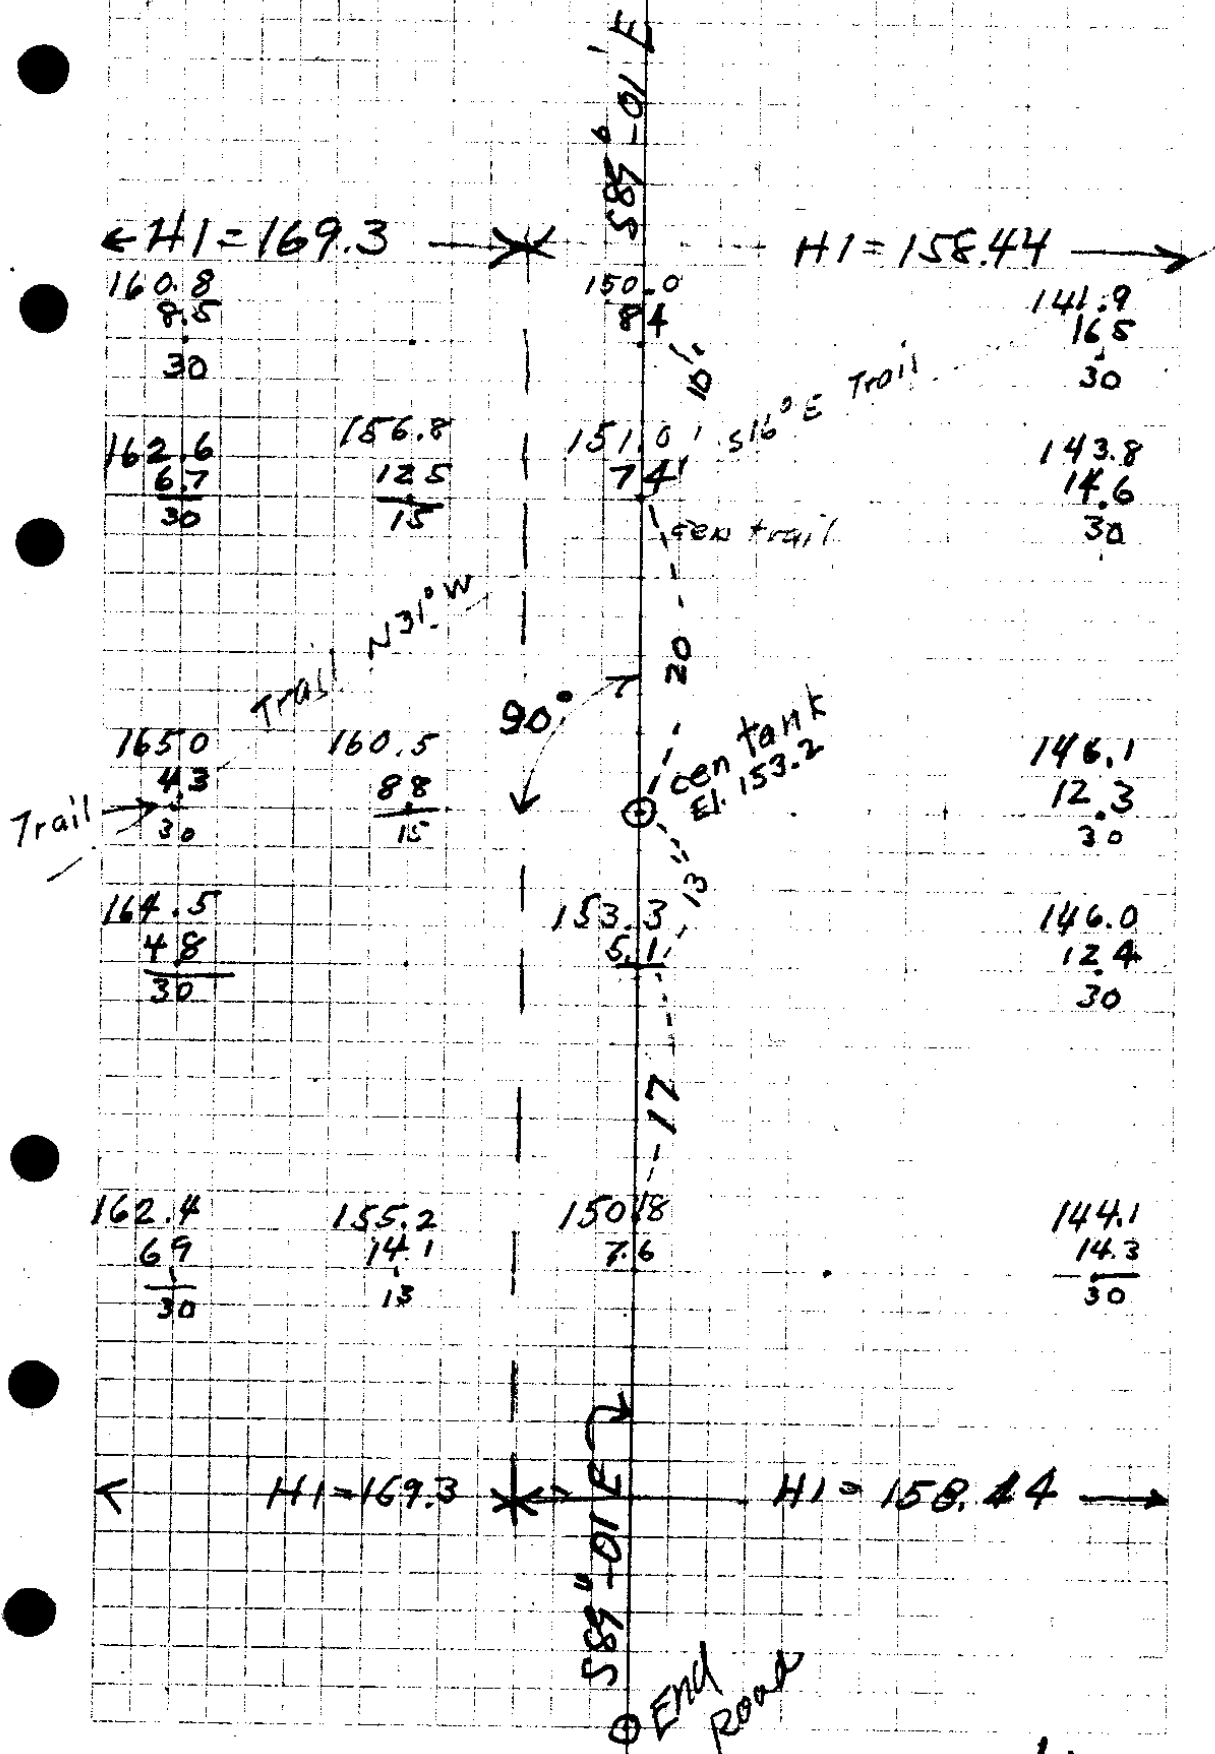 S89°-01' E
HI=169.3
HI=158.44
160.8
8.5
30
150.0
84
10'
141.9
165
30
S16°E Trail
162.6
6.7
30
156.8
125
15
151.0
74
143.8
14.6
30
cen trail
Trail N31°W
20
90°
cen tank
El. 153.2
1650
43
30
Trail
160.5
88
15
146.1
12.3
30
13
164.5
48
30
153.3
5.1
146.0
124
30
17
162.4
69
30
155.2
141
13
150.8
7.6
144.1
14.3
30
HI=169.3
HI=158.44
S89°-01 E
End
Road